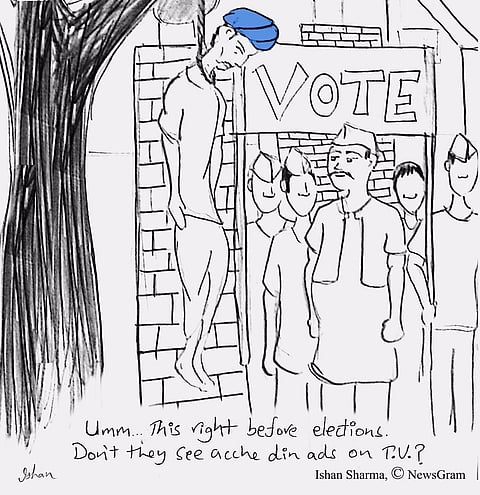 VOTE
Umm... This right before elections.
Don't they see acche din ads on T.V.?
Ishan
Ishan Sharma, © NewsGram